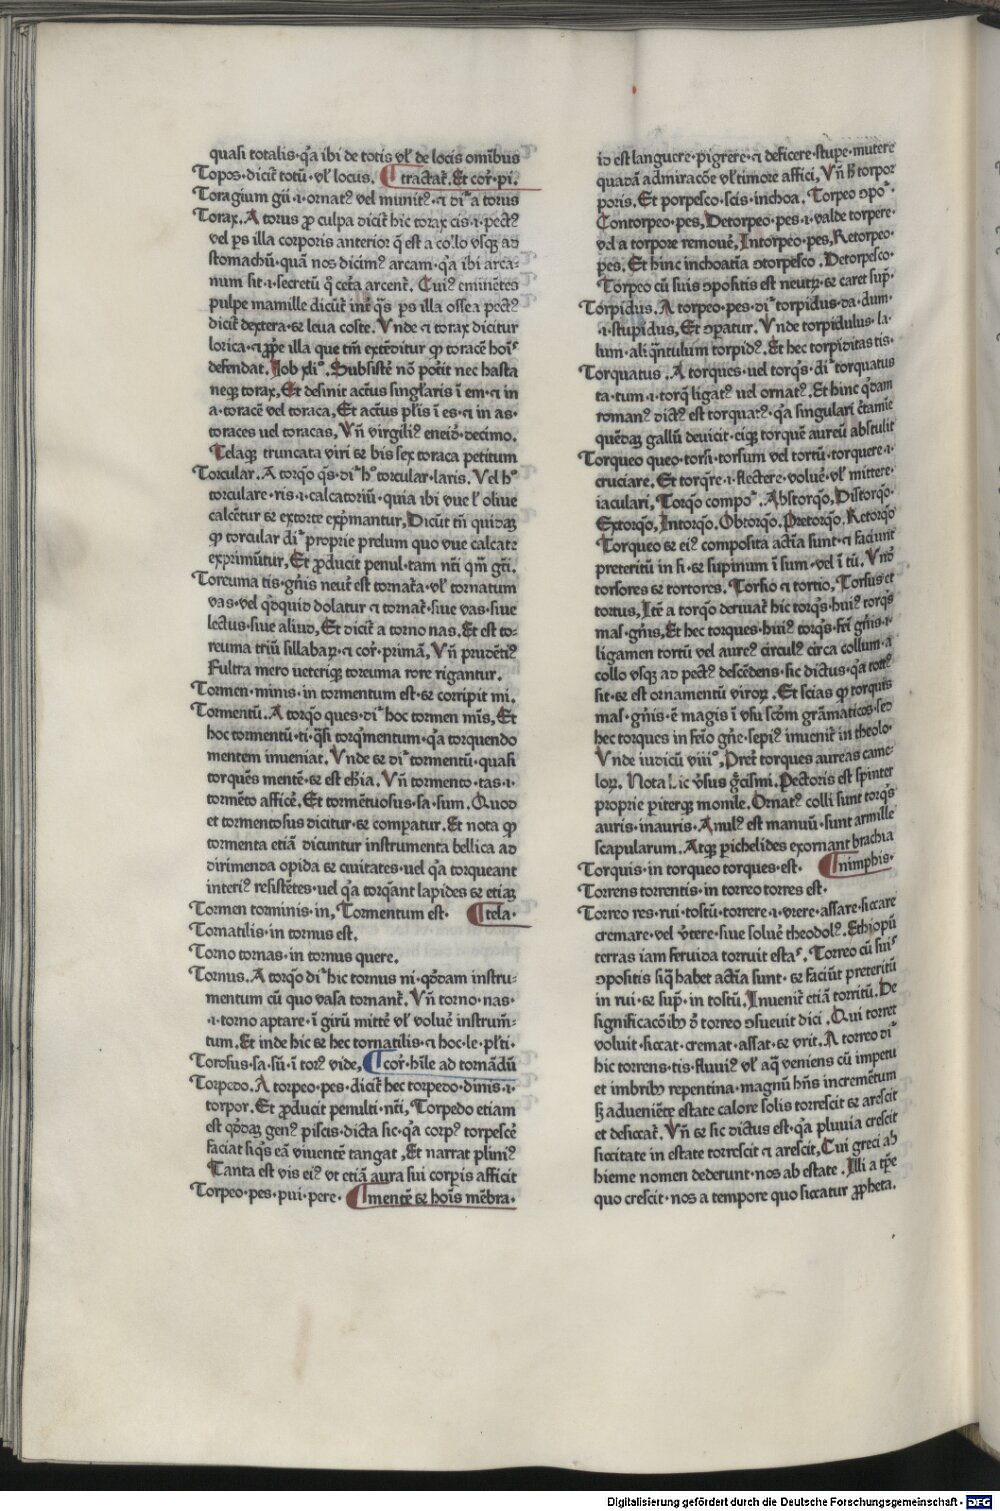 quasi totalis·q̄a ibi de totis vl̓ de locis omībus
Topos·dicit̄ totū·vl̓ locus. ¶ tractat̄. Et cor̄·pi.
Toragium gii·i·ornatꝰ vel munitꝰ·⁊ di᷑ a torus
Torax. A torus ꝓ culpa dicit̄ hic torax cis·i·pectꝰ
vel ps illa corporis anterior q̄ est a collo vsqꝫ ad
stomachū·quā nos dicimꝰ arcam·q̄a ibi arca⸗
num sit·i·secretū q̄ cet̄a arcent̄. Cuiꝰ eminētes
pulpe mamille dicūt̄ int̄ q̄s ps illa ossea pectꝰ
dicit̄ dextera·⁊ leua coste. Vnde ⁊ torax dicitur
lorica·⁊ ꝓp̄e illa que tm̄ extēditur ꝙ toracē hoīs
defendat. Job xli°. Subsistē nō potīt nec hasta
neqꝫ torax, Et desinit actꝰus singl̓aris ī em·⁊ in
a·toracē vel toraca, Et actꝰus pl̓is ī es·⁊ in as·
toraces uel toracas, Vn̄ virgiliꝰ eneid̄·decimo.
Telaqꝫ truncata viri ⁊ bis sex toraca petitum
Torcular. A torq̄o q̄s·di᷑ h° torcular·laris. Vel h°
torculare·ris·i·calcatoriū·quia ibi vue l̓ oliue
calcētur ⁊ extorte exp̄mantur, Dicūt tn̄ quidaꝫ
ꝙ torcular di᷑ proprie prelum quo vue calcate
exprimūtur, Et ꝓducit penul·tam nt̄i qm̄ gt̄i.
Toreuma tis·gn̄is neut̄ est tornata·vl̓ tornatum
vas·vel q̄dquid dolatur ⁊ tornat̄·siue vas·siue
lectus·siue aliud, Et dicit̄ a torno nas. Et est to⸗
reuma triū sillabaꝝ·⁊ cor̄·primā, Vn̄ prudētiꝰ
Fultra mero ueteriqꝫ toreuma rore rigantur.
Tormen·minis·in tormentum est·⁊ corripit mi.
Tormentū. A torq̄o ques·di᷑ hoc tormen mīs, Et
hoc tormentū·ti·q̄si torq̄mentum·q̄a torquendo
mentem inueniat. Vnde ⁊ di᷑ tormentū·quasi
torquēs mentē·⁊ est eb̄ia. Vn̄ tormento·tas·i·
tormēto afficē. Et tormētuosus·sa·sum. Quod
et tormentosus dicitur·⁊ compatur. Et nota ꝙ
tormenta etiā dicuntur instrumenta bellica ad
dirimenda opida ⁊ cuiutates·uel q̄a torqueant
interiꝰ resistētes·uel q̄a torq̄ant lapides ⁊ etiaꝫ
Tormen torminis·in, Tormentum est· ¶ tela·
Tornatilis·in tornus est.
Torno tornas·in tornus quere.
Tornus. A torq̄o di᷑ hic tornus ni·q̄ddam instru⸗
mentum cū quo vasa tornant̄. Vn̄ torno·nas·
·i·torno aptare·ī girū mittē vl̓ voluē instrum̄⸗
tum. Et inde hic ⁊ hec tornatilis·⁊ hoc·le·pl̓ti·
Torosus·sa·sū·ī torꝰ vide, ¶ cor̄·hīle ad tornādū
Torpedo. A torpeo·pes·dicit̄ hec torpedo·dinis·i·
torpor. Et ꝓducit penulti·nt̄i, Torpedo etiam
est q̄ddaꝫ genꝰ piscis·dicta sic·q̄a corpꝰ torpescē
faciat siq̄s eā viuentē tangat, Et narrat pliniꝰ
Tanta est vis eiꝰ vt etiā aura sui corpis afficit
Torpeo·pes·pui·pere· ¶ mentē ⁊ hoīs mēbra·
id est languere·pigrere·⁊ deficere·stupe·mutere
quadā admiracōe vl̓ timore affici, Vn̄ h̓ torpor
poris. Et porpesco·scis·inchoa. Torpeo ↄpo᷑
Contorpeo·pes, Detorpeo·pes·i·valde torpere·
vel a torpore remouē, Intorpeo·pes, Retorpeo·
pes. Et hinc inchoatia ↄtorpesco. Detorpesco·
Torpeo cū suis ↄpositis est neutꝝ·⁊ caret sup̄·
Torpidus. A torpeo·pes·di᷑ torpidus·da·dum·
·i·stupidus, Et ↄpatur. Vnde torpidulus·la·
lum·ali q̄ntulum torpidꝰ. Et hec torpiditas tis·
Torquatus. A torques·uel torq̄s·di᷑ torquatus
ta·tum·i·torq̄ ligatꝰ uel ornatꝰ. Et hinc q̄dam
romanꝰ dictꝰ est torquatꝰ·q̄a singulari c̄tamīe
quēdaꝫ gallū deuicit·eiqꝫ torquē aureū abstulit
Torqueo queo·torsi·torsum vel tortū·torquere·i·
cruciare. Et torq̄re·i·flectere·voluē·vl̓ mittere·
iaculari, Torq̄o compo᷑. Abstorq̄o, Distorq̄o·
Extorq̄o, Intorq̄o. Obtorq̄o. Pretorq̄o. Retorq̄o
Torqueo ⁊ eiꝰ composita actīa sunt·⁊ faciunt
preteritū in si·⁊ supinum ī sum·vel ī tū. Vnō
torsores ⁊ tortores. Torsio ⁊ tortio, Torsus et
tortus, Itē a torq̄o deriuat̄ hic torq̄s·huiꝰ torq̄s
mas·gn̄is, Et hec torques·huiꝰ torq̄s·fei gn̄is·i·
ligamen tortū vel aureꝰ circulꝰ circa collum·a
collo vsqꝫ ad pectꝰ descēdens·sic dictus·q̄a tortꝰ
sit·⁊ est ornamentū viroꝝ. Et scias ꝙ torquis
mas·gn̄is·ē magis ī vsu scd̄m grāmaticos·sed
hec torques in feīo gn̄e·sepiꝰ inuenit̄ in theolo·
Vnde iudicū viii°, Pret̄ torques aureas came⸗
loꝝ. Nota hic v̄sus ḡcismi. Pectoris est spinter
proprie pit̄erqꝫ monile. Ornatꝰ colli sunt torq̄s
auris·inauris. Anulꝰ est manuū·sunt armille
scapularum. Atqꝫ pichelides exornant brachia
Torquis·in torqueo torques·est. ¶ nimphis·
Torrens torrentis·in torreo torres est·
Torreo res·rui·tostū·torrere·i·vrere·assare·siccare
cremare·vel v̄tere·siue soluē theodolꝰ. Ethiopū
terras iam feruida torruit estas. Torreo cū suis
ↄpositis siq̄ habet actīa sunt·⁊ faciūt preteritū
in rui·⁊ sup̄·in tostū. Inuenit̄ etiā torritū. De
significacōibꝫ ō torreo ↄsueuit dici. Qui torret
voluit·siccat·cremat·assat·⁊ vrit. A torreo di᷑
hic torrens·tis·fluuiꝰ vl̓ aq̄ veniens cū impetu
et imbribꝫ repentina·magnū hn̄s incremētum
sꝫ adueniēte estate calore solis torrescit ⁊ arescit
et desiccat̄. Vn̄ ⁊ sic dictus est·q̄a pluuia crescit
siccitate in estate torrescit ⁊ arescit, Cui greci ab
hieme nomen dederunt·nos ab estate. Illi a tp̄e
quo crescit·nos a tempore quo siccatur ꝓpheta.
Digitalisierung gefördert durch die Deutsche Forschungsgemeinschaft · DFG